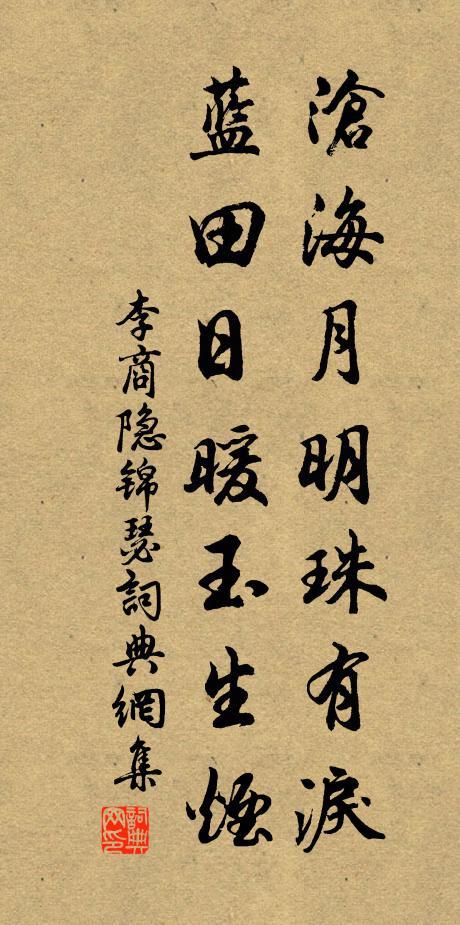 滄海月明珠有淚
藍田日暖玉生煙
李商隐锦瑟詞典網集
詞典网印